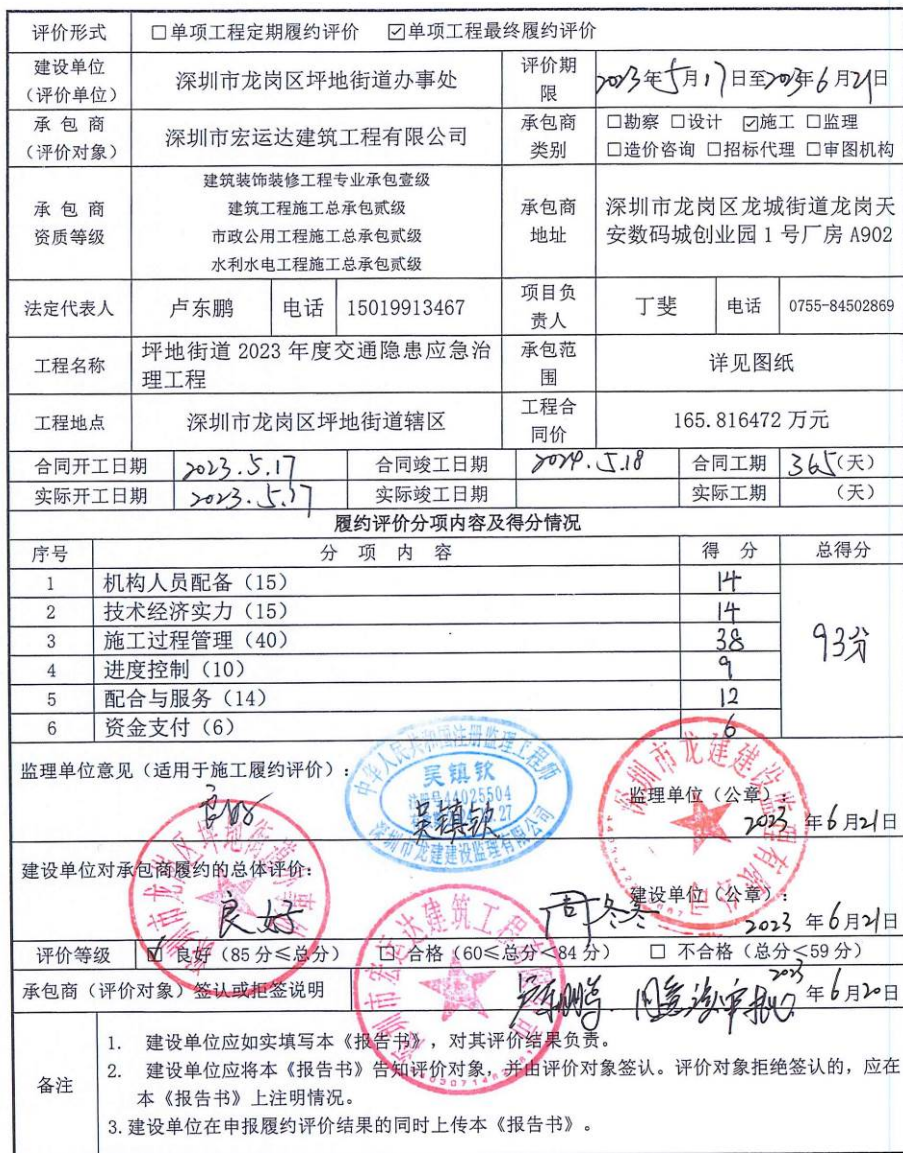 评价形式 □单项工程定期履约评价 ☑单项工程最终履约评价
建设单位（评价单位） 深圳市龙岗区坪地街道办事处 评价期限 2023年5月17日至2023年6月21日
承包商（评价对象） 深圳市宏运达建筑工程有限公司 承包商类别 □勘察 □设计 ☑施工 □监理
□造价咨询 □招标代理 □审图机构
承包商资质等级 建筑装饰装修工程专业承包壹级
建筑工程施工总承包贰级
市政公用工程施工总承包贰级
水利水电工程施工总承包贰级
承包商地址 深圳市龙岗区龙城街道龙岗天
安数码城创业园 1 号厂房 A902
法定代表人 卢东鹏 电话 15019913467 项目负责人 丁斐 电话 0755-84502869
工程名称 坪地街道 2023 年度交通隐患应急治
理工程 承包范围 详见图纸
工程地点 深圳市龙岗区坪地街道辖区 工程合同价 165.816472 万元
合同开工日期 2023.5.17 合同竣工日期 2024.5.18 合同工期 365(天)
实际开工日期 2023.5.17 实际竣工日期 实际工期 （天）
履约评价分项内容及得分情况
序号 分 项 内 容 得 分 总得分
1 机构人员配备（15） 14
2 技术经济实力（15） 14
3 施工过程管理（40） 38 93分
4 进度控制（10） 9
5 配合与服务（14） 12
6 资金支付（6） 6
监理单位意见（适用于施工履约评价）：
良好
中华人民共和国注册监理工程师
吴镇钦
注册号44025504
深圳市龙建建设监理有限公司
吴镇钦
深圳市龙建建设监理有限公司
监理单位（公章）：
2023 年 6 月 21 日
建设单位对承包商履约的总体评价：
良好
周冬冬
建设单位（公章）：
2023 年 6 月 21 日
评价等级 ☑ 良好（85 分≤总分） □ 合格（60≤总分<84 分） □ 不合格（总分≤59 分）
承包商（评价对象）签认或拒签说明 卢东鹏 2023 年 6 月 20 日
深圳市宏运达建筑工程有限公司
备注 1. 建设单位应如实填写本《报告书》，对其评价结果负责。
2. 建设单位应将本《报告书》告知评价对象，并由评价对象签认。评价对象拒绝签认的，应在
本《报告书》上注明情况。
3.建设单位在申报履约评价结果的同时上传本《报告书》。